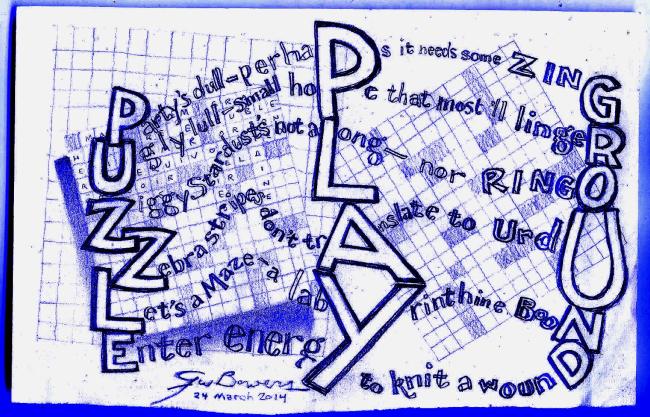 Party's dull—perhaPs it needs some ZING
Ugly lull—small hoPe that most'll lingeR
Ziggy Stardust's not aLong— nor RINGO
Zebra stripes don't trAnslate to UrdU
Let's a Maze—a labYrinthine BooN
Enter energY to knit a wounD
Gus Bowers
24 March 2014